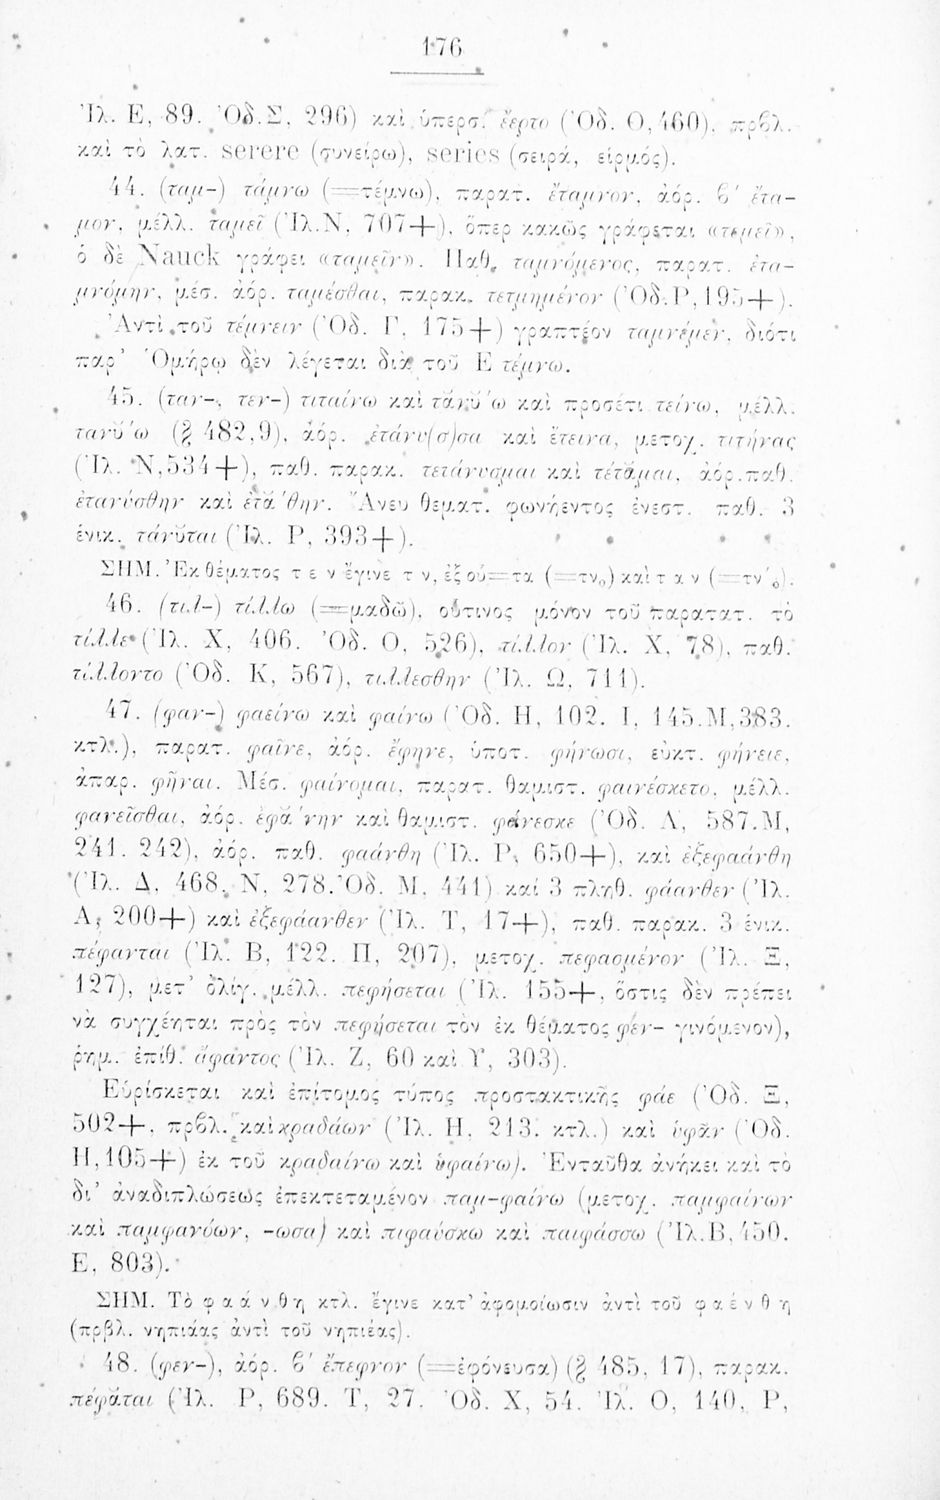 176
Ἰλ. Ε, 89. Ὀδ. Σ, 296) καὶ ὑπερσ. ἔερτο (Ὀδ. Ο, 460), πρβλ.
καὶ τὸ λατ. serere (συνείρω), series (σειρά, εἱρμός).
44. (ταμ-) τάμνω (=τέμνω), παρατ. ἔταμνον, ἀόρ. β΄ ἔτα-
μον, μέλλ. ταμεῖ (Ἰλ. Ν, 707+), ὅπερ κακῶς γράφεται «τεμεῖ»,
ὁ δὲ Nauck γράφει «ταμεῖν». Παθ. ταμνόμενος, παρατ. ἐτα-
μνόμην, μέσ. ἀόρ. ταμέσθαι, παρακ. τετμημένον (Ὀδ. Ρ, 195+).
Ἀντὶ τοῦ τέμνειν (Ὀδ. Γ, 175+) γραπτέον ταμνέμεν, διότι
παρ’ Ὁμήρῳ δὲν λέγεται διὰ τοῦ Ε τέμνω.
45. (ταν-, τεν-) τιταίνω καὶ τανῠ́ω καὶ προσέτι τείνω, μέλλ.
τανῠ́ω (§ 482,9), ἀόρ. ἐτάνυ(σ)σα καὶ ἔτεινα, μετοχ. τιτήνας
(Ἰλ. Ν, 534+), παθ. παρακ. τετάνυσμαι καὶ τέτᾰμαι, ἀόρ. παθ.
ἐτανύσθην καὶ ἐτᾰ́θην. Ἄνευ θεματ. φωνήεντος ἐνεστ. παθ. 3
ἑνικ. τάνῠται (Ἰλ. Ρ, 393+).
ΣΗΜ. Ἐκ θέματος τεν ἔγινε τν, ἐξ οὗ=τα (=τν₀) καὶ ταν (=τν΄₀).
46. (τιλ-) τίλλω (=μαδῶ), οὗτινος μόνον τοῦ παρατατ. τὸ
τίλλε (Ἰλ. Χ, 406. Ὀδ. Ο, 526), τίλλον (Ἰλ. Χ, 78), παθ.
τίλλοντο (Ὀδ. Κ, 567), τιλλεσθην (Ἰλ. Ω, 711).
47. (φαν-) φαείνω καὶ φαίνω (Ὀδ. Η, 102. Ι, 145. Μ, 383.
κτλ.), παρατ. φαῖνε, ἀόρ. ἔφηνε, ὑποτ. φήνωσι, εὐκτ. φήνειε,
ἀπαρ. φῆναι. Μέσ. φαίνομαι, παρατ. θαμιστ. φαινέσκετο, μέλλ.
φανεῖσθαι, ἀόρ. ἐφᾰ́νην καὶ θαμιστ. φάνεσκε (Ὀδ. Λ, 587. Μ,
241. 242), ἀόρ. παθ. φαάνθη (Ἰλ. Ρ, 650+), καὶ ἐξεφαάνθη
(Ἰλ. Δ, 468. Ν, 278. Ὀδ. Μ, 441) καί 3 πληθ. φάανθεν (Ἰλ.
Α, 200+) καὶ ἐξεφάανθεν (Ἰλ. Τ, 17+), παθ. παρακ. 3 ἑνικ.
πέφανται (Ἰλ. Β, 122. Π, 207), μετοχ. πεφασμένον (Ἰλ. Ξ,
127), μετ’ ὀλίγ. μέλλ. πεφήσεται (Ἰλ. 155+, ὅστις δὲν πρέπει
νὰ συγχέηται πρὸς τὸν πεφήσεται τὸν ἐκ θέματος φεν- γινόμενον),
ῥημ. ἐπίθ. ἄφαντος (Ἰλ. Ζ, 60 καὶ Υ, 303).
Εὑρίσκεται καὶ ἐπίτομος τύπος προστακτικῆς φάε (Ὀδ. Ξ,
502+, πρβλ. καὶ κραδάων (Ἰλ. Η, 213. κτλ.) καὶ ὑφᾶν (Ὀδ.
Η, 105+) ἐκ τοῦ κραδαίνω καὶ ὑφαίνω). Ἐνταῦθα ἀνήκει καὶ τὸ
δι’ ἀναδιπλώσεως ἐπεκτεταμένον παμ-φαίνω (μετοχ. παμφαίνων
καὶ παμφανόων, -ωσα) καὶ πιφαύσκω καὶ παιφάσσω (Ἰλ. Β, 450.
Ε, 803).
ΣΗΜ. Τὸ φαάνθη κτλ. ἔγινε κατ’ ἀφομοίωσιν ἀντὶ τοῦ φαένθη
(πρβλ. νηπιάας ἀντὶ τοῦ νηπιέας).
48. (φεν-), ἀόρ. β΄ ἔπεφνον (=ἐφόνευσα) (§ 485, 17), παρακ.
πέφᾰται (Ἰλ. Ρ, 689. Τ, 27. Ὀδ. Χ, 54. Ἰλ. Ο, 140, Ρ,